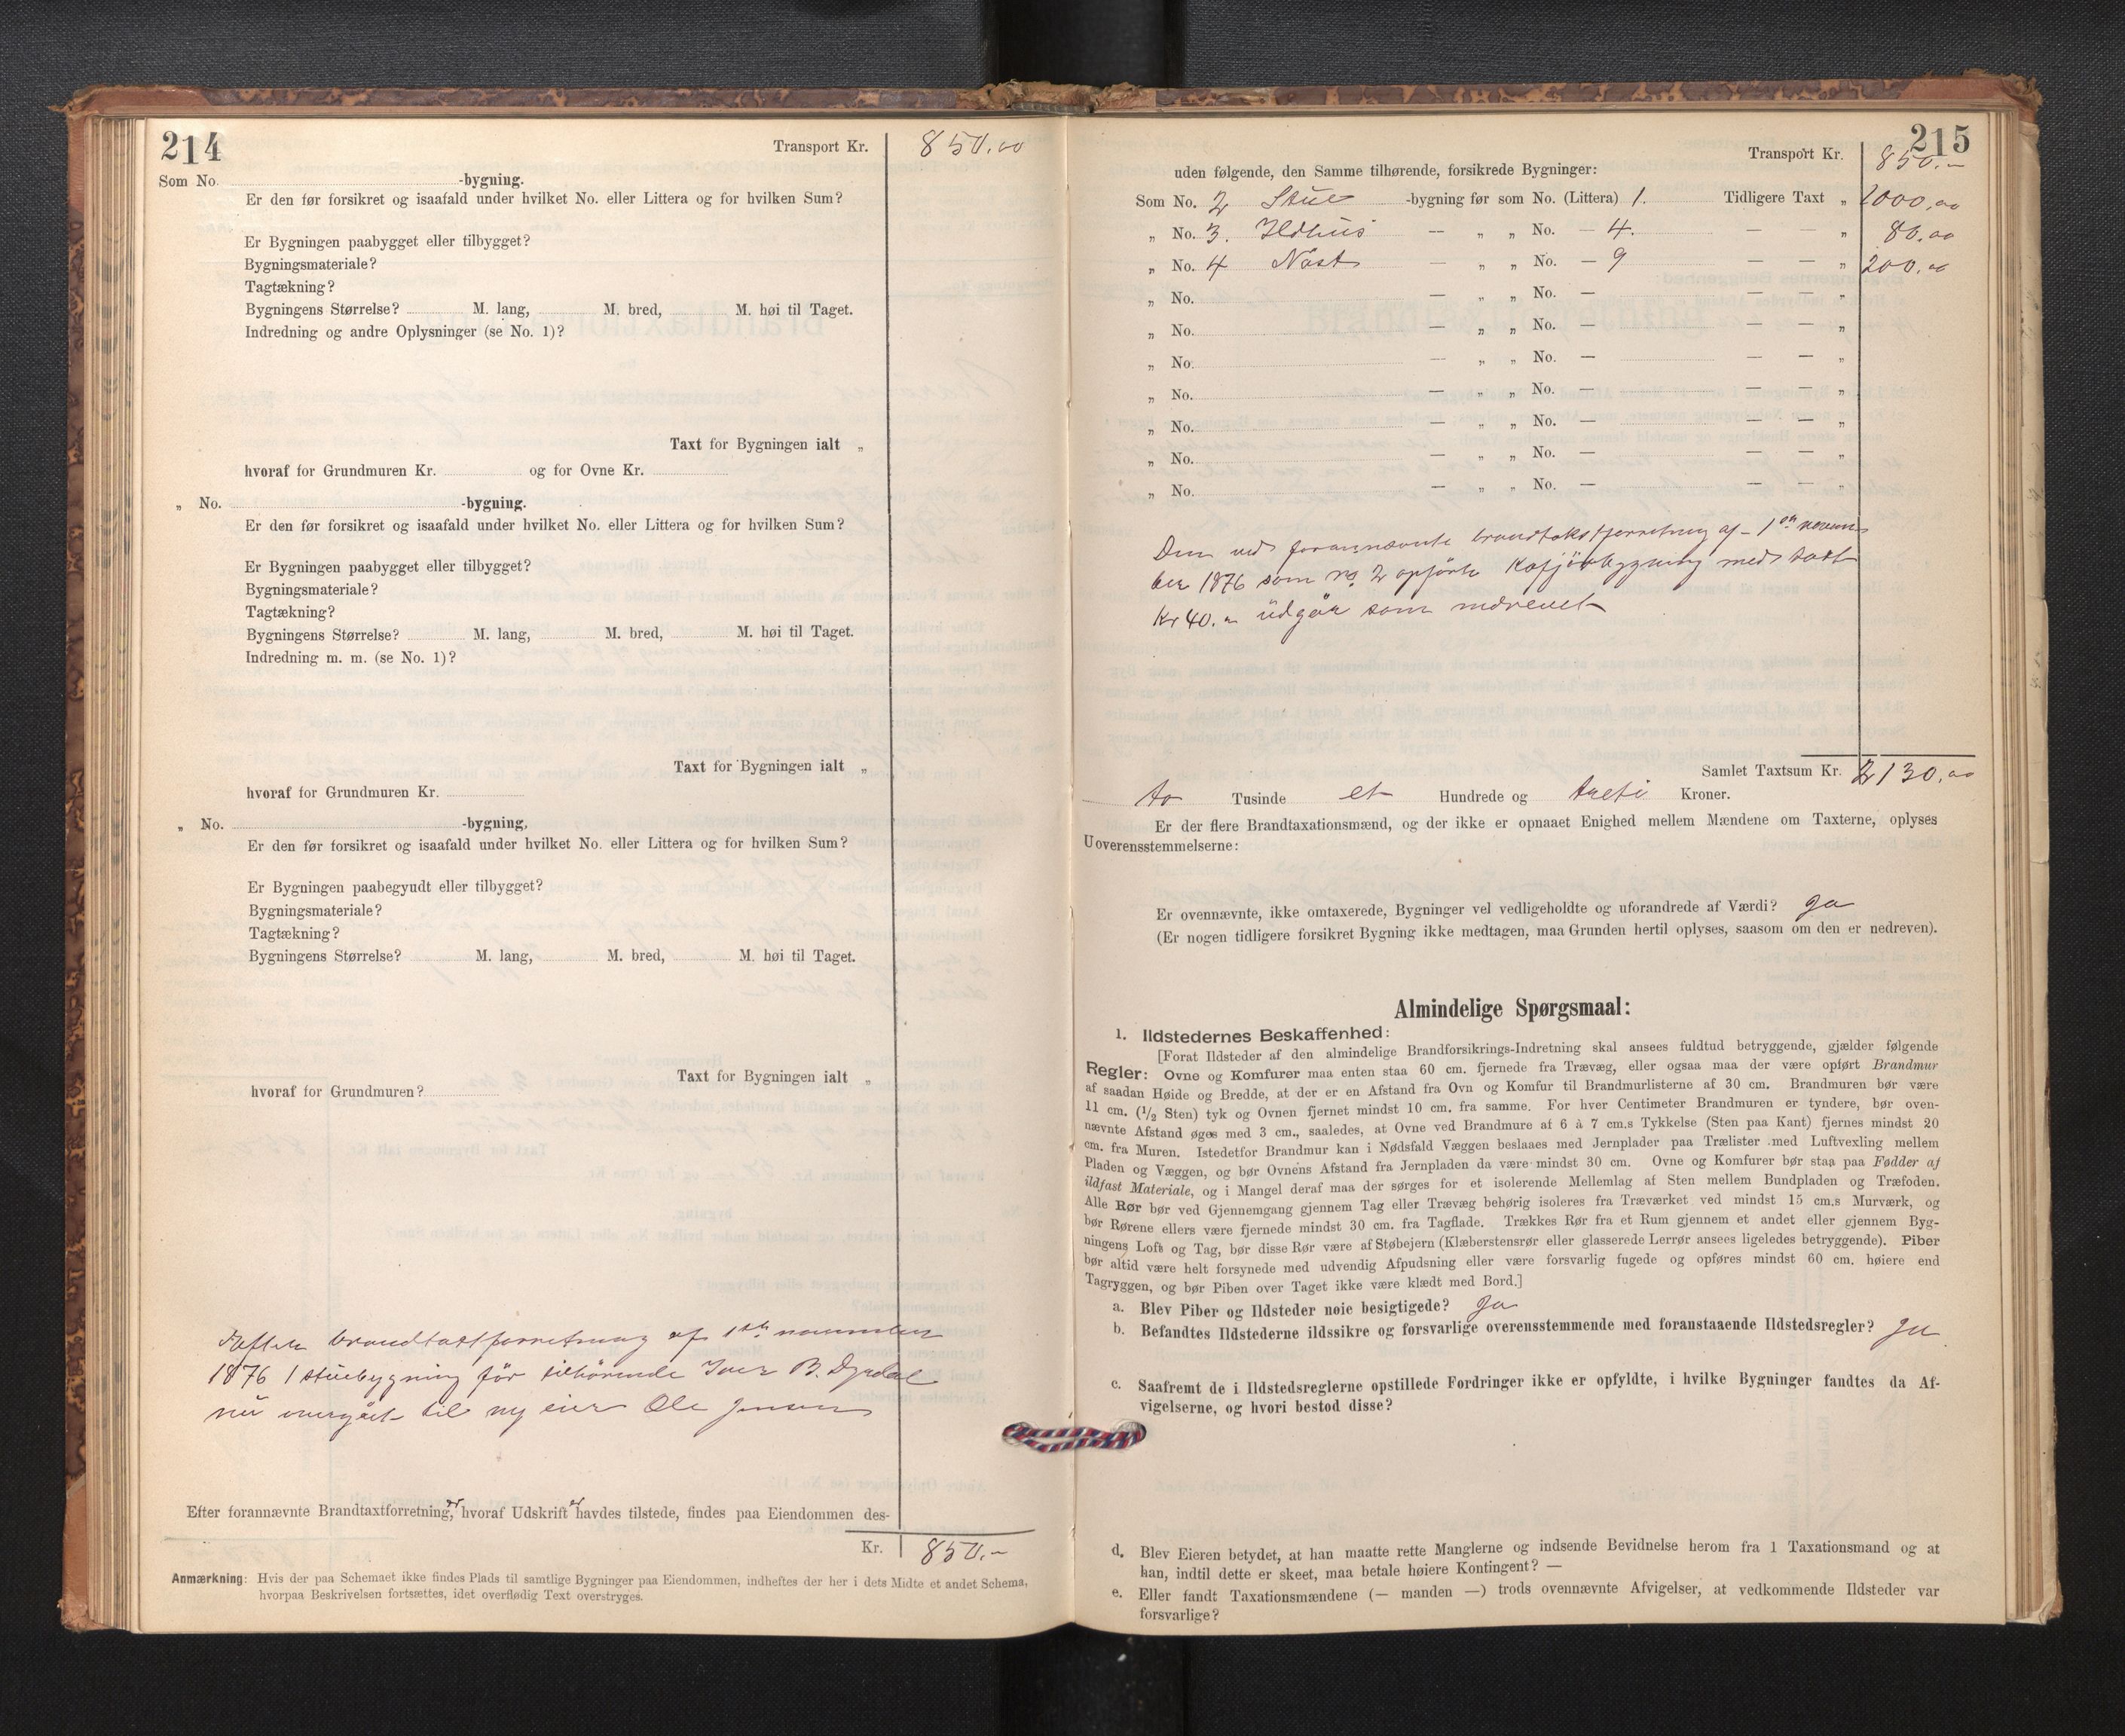 214
Transport Kr. 850.00
Som No. -bygning.
Er den før forsikret og isaafald under hvilket No. eller Littera og for hvilken Sum?
Er Bygningen paabygget eller tilbygget?
Bygningsmateriale?
Tagtækning?
Bygningens Størrelse? M. lang, M. bred, M. høi til Taget.
Indredning og andre Oplysninger (se No. 1)?
Taxt for Bygningen ialt „
hvoraf for Grundmuren Kr. og for Ovne Kr.
„ No. -bygning.
Er den før forsikret og isaafald under hvilket No. eller Littera og for hvilken Sum?
Er Bygningen paabygget eller tilbygget?
Bygningsmateriale?
Tagtækning?
Bygningens Størrelse? M. lang, M. bred, M. høi til Taget.
Indredning m. m. (se No. 1)?
Taxt for Bygningen ialt „
hvoraf for Grundmuren Kr.
„ No. -bygning,
Er den før forsikret og isaafald under hvilket No. eller Littera og for hvilken Sum?
Er Bygningen paabegyudt eller tilbygget?
Bygningsmateriale?
Tagtækning?
Bygningens Størrelse? M. lang, M. bred, M. høi til Taget.
Taxt for Bygningen ialt „
hvoraf for Grundmuren?
Efter brandtaxtforretning af 1ste november
1876 1 stuebygning før tilhörende Iver B. Dyrdal
nu overgået til ny eier Ole Jensen
Efter forannævnte Brandtaxtforretning,er hvoraf Udskrifter havdes tilstede, findes paa Eiendommen des-
Kr. 850.-
Anmærkning: Hvis der paa Schemaet ikke findes Plads til samtlige Bygninger paa Eiendommen, indheftes der her i dets Midte et andet Schema,
hvorpaa Beskrivelsen fortsættes, idet overflødig Text overstryges.
215
Transport Kr. 850.-
uden følgende, den Samme tilhørende, forsikrede Bygninger:
Som No. 2 Stue -bygning før som No. (Littera) 1. Tidligere Taxt „ 1000,00
„ No. 3. Ildhus — „ „ No. — 4. — — „ 80,00
„ No. 4 Nöst — „ „ No. — 9 — — „ 200,00
„ No. — „ „ No. — — — „
„ No. — „ „ No. — — — „
„ No. — „ „ No. — — — „
„ No. — „ „ No. — — — „
„ No. — „ „ No. — — — „
„ No. — „ „ No. — — — „
„ No. — „ „ No. — — — „
Den ved forannævnte brandtakstforretning af 1ste novem
ber 1876 som no 2 opförte bygning med taxt
Kr 40.00 udgår som nedrevet
Samlet Taxtsum Kr. 2130,00
to Tusinde et Hundrede og treti Kroner.
Er der flere Brandtaxationsmænd, og der ikke er opnaaet Enighed mellem Mændene om Taxterne, oplyses
Uoverensstemmelserne:
Er ovennævnte, ikke omtaxerede, Bygninger vel vedligeholdte og uforandrede af Værdi? ja
(Er nogen tidligere forsikret Bygning ikke medtagen, maa Grunden hertil oplyses, saasom om den er nedreven).
Almindelige Spørgsmaal:
1. Ildstedernes Beskaffenhed:
[Forat Ildsteder af den almindelige Brandforsikrings-Indretning skal ansees fuldtud betryggende, gjælder følgende
Regler: Ovne og Komfurer maa enten staa 60 cm. fjernede fra Trævæg, eller ogsaa maa der være opført Brandmur
af saadan Høide og Bredde, at der er en Afstand fra Ovn og Komfur til Brandmurlisterne af 30 cm. Brandmuren bør være
11 cm. (1/2 Sten) tyk og Ovnen fjernet mindst 10 cm. fra samme. For hver Centimeter Brandmuren er tyndere, bør oven-
nævnte Afstand øges med 3 cm., saaledes, at Ovne ved Brandmure af 6 à 7 cm.s Tykkelse (Sten paa Kant) fjernes mindst 20
cm. fra Muren. Istedetfor Brandmur kan i Nødsfald Væggen beslaaes med Jernplader paa Trælister med Luftvexling mellem
Pladen og Væggen, og bør Ovnens Afstand fra Jernpladen da være mindst 30 cm. Ovne og Komfurer bør staa paa Fødder af
ildfast Materiale, og i Mangel deraf maa der sørges for et isolerende Mellemlag af Sten mellem Bundpladen og Træfoden.
Alle Rør bør ved Gjennemgang gjennem Tag eller Trævæg behørig isoleres fra Træværket ved mindst 15 cm.s Murværk, og
bør Rørene ellers være fjernede mindst 30 cm. fra Tagflade. Trækkes Rør fra et Rum gjennem et andet eller gjennem Byg-
ningens Loft og Tag, bør disse Rør være af Støbejern (Klæberstensrør eller glasserede Lerrør ansees ligeledes betryggende). Piber
bør altid være helt forsynede med udvendig Afpudsning eller være forsvarlig fugede og opføres mindst 60 cm. høiere end
Tagryggen, og bør Piben over Taget ikke være klædt med Bord.]
a. Blev Piber og Ildsteder nøie besigtigede? ja
b. Befandtes Ildstederne ildssikre og forsvarlige overensstemmende med foranstaaende Ildstedsregler? ja
c. Saafremt de i Ildstedsreglerne opstillede Fordringer ikke er opfyldte, i hvilke Bygninger fandtes da Af-
vigelserne, og hvori bestod disse?
d. Blev Eieren betydet, at han maatte rette Manglerne og indsende Bevidnelse herom fra 1 Taxationsmand og at
han, indtil dette er skeet, maa betale høiere Kontingent? —
e. Eller fandt Taxationsmændene (— manden —) trods ovennævnte Afvigelser, at vedkommende Ildsteder var
forsvarlige?